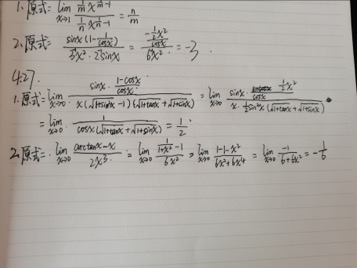 1.原式=lim x→1 (1/m x^(1/m -1))/(1/n x^(1/n -1)) = n/m
2.原式= (sinx(1-1/cosx))/(3x²·2sinx) = (-1/2x²/cosx)/(6x²) = -3
4.27.
1.原式=lim x→0 (sinx·(1-cosx)/cosx)/(x(√1+sin²x -1)(√1+tanx+√1+sinx)) = lim x→0 (sinx· 1/2x²/cosx)/(x·1/2sin²x(√1+tanx+√1+sinx))
=lim x→0 1/(cosx(√1+tanx+√1+sinx)) = 1/2
2.原式=lim x→0 (arctanx-x)/(2x³) = lim x→0 (1/(1+x²) -1)/(6x²) = lim x→0 (1-1-x²)/(6x²+6x⁴) = lim x→0 -1/(6+6x²) = -1/6